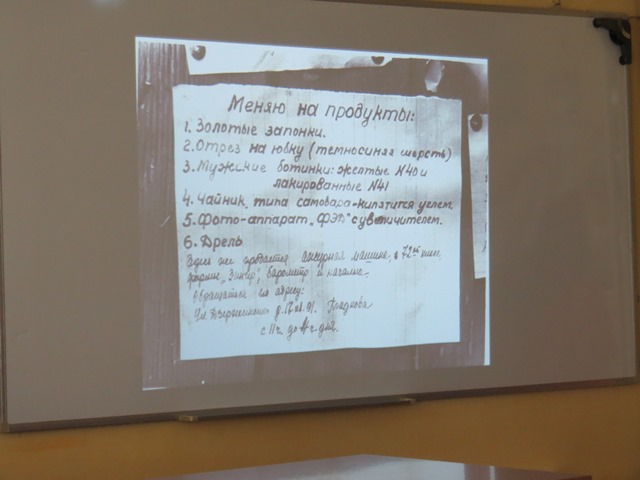 Меняю на продукты:
1. Золотые запонки.
2. Отрез на юбку (темносиняя шерсть)
3. Мужские ботинки: желтые N40 и
лакированные N41
4. Чайник типа самовара-кипятится углем
5. Фото-аппарат „ФЭД" с увеличителем.
6. Дрель
продается ажурная машина, в 72
фирмы „Зингер", барометр и качалка.
Обращаться по адресу:
ул. Дзержинского д.
с 11 ч. до 4 ч. дня.